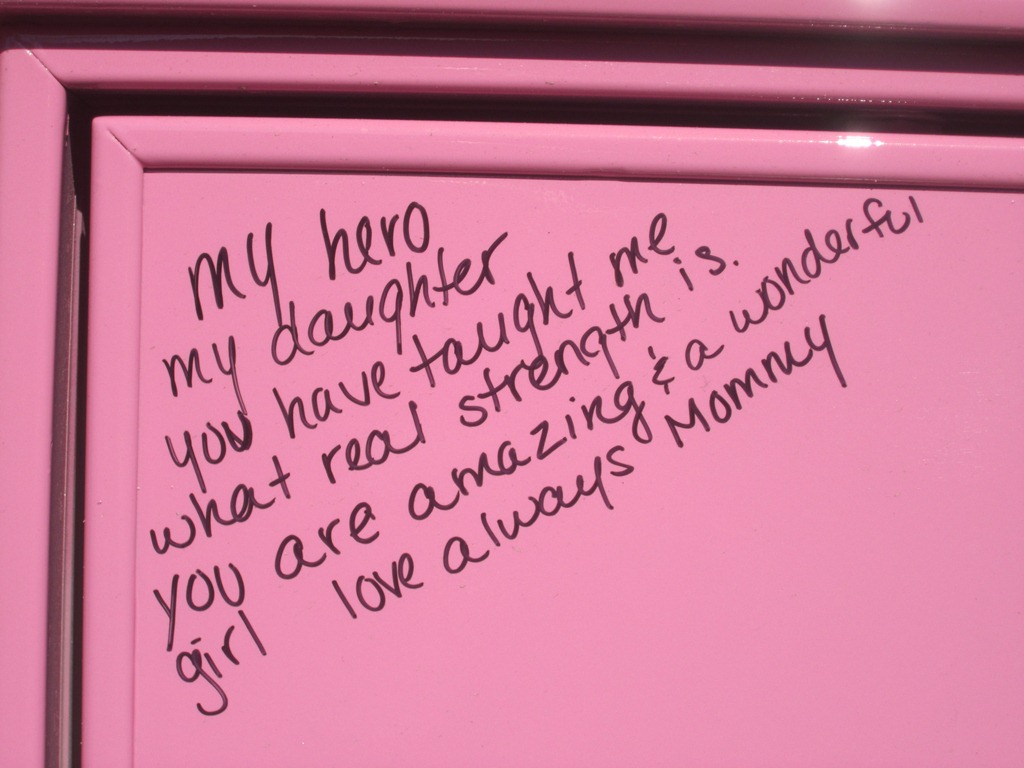 my hero
my daughter
you have taught me
what real strength is.
you are amazing & a wonderful
girl love always Mommy